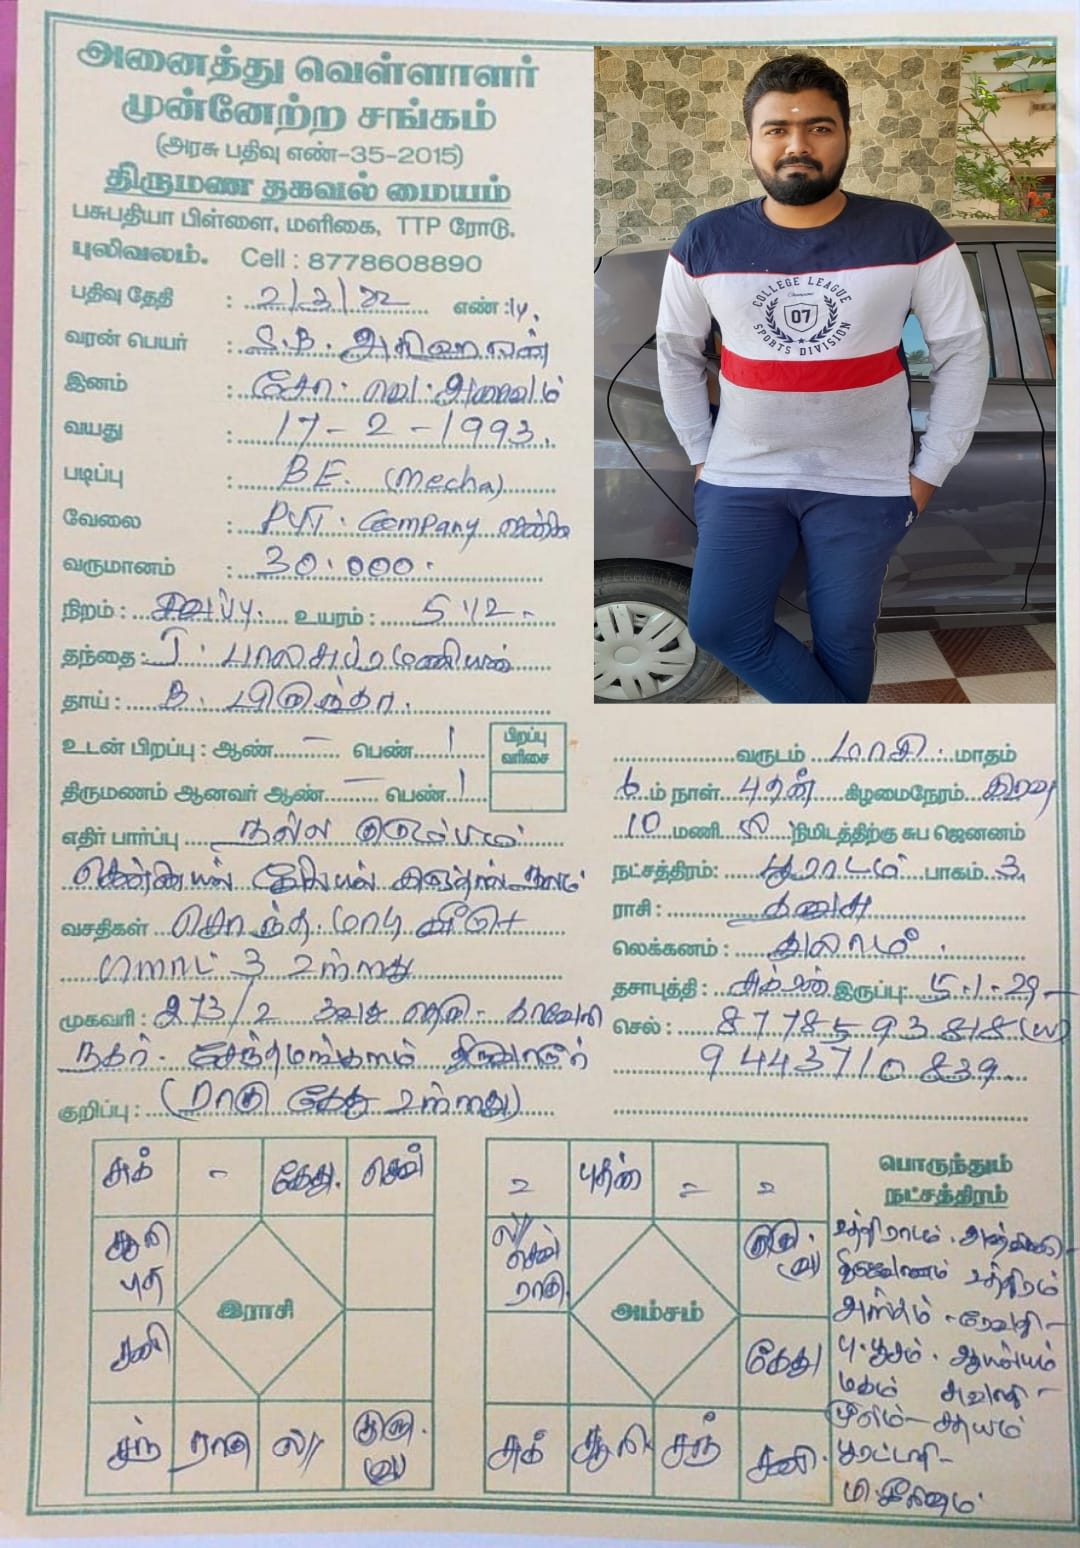 அனைத்து வெள்ளாளர்
முன்னேற்ற சங்கம்
(அரசு பதிவு எண்-35-2015)
திருமண தகவல் மையம்
பசுபதியா பிள்ளை, மளிகை, TTP ரோடு,
புலிவலம். Cell : 8778608890
பதிவு தேதி : 2/3/22 எண் : 14.
வரன் பெயர் : S.B.
இனம் : சோ.
வயது : 17-2-1993.
படிப்பு : BE. (Mecha)
வேலை : PVT. Company
வருமானம் : 30.000.
நிறம் : சிவப்பு. உயரம் : 5 1/2.
தந்தை : T. பாலசுப்ரமணியன்
தாய் : B. பிருந்தா.
உடன் பிறப்பு : ஆண் - பெண் 1
பிறப்பு
வரிசை
திருமணம் ஆனவர் ஆண் - பெண் 1
எதிர் பார்ப்பு நல்ல குடும்பம்
வசதிகள் சொந்த மாடி வீடு +
பிளாட் 3 உள்ளது
முகவரி : 273/2 காவேரி
நகர். சேந்தமங்கலம் திருவாரூர்
குறிப்பு : (ராகு கேது உள்ளது)
வருடம் மாசி. மாதம்
6 ம் நாள் புதன் கிழமைநேரம் இரவு
10 மணி நிமிடத்திற்கு சுப ஜெனனம்
நட்சத்திரம்: பூராடம் பாகம் 3
ராசி : தனுசு
லெக்கனம் : துலாம்.
தசாபுத்தி : சுக்கிரன் இருப்பு: 5-1-29
செல் : 8778593818
9443710839
சுக் - கேது. செவ்
சூரி
புத
சனி
இராசி
சந் ராகு ல// குரு.
(வ)
- புதன் - -
ல//
செவ்
ராகு
குரு.
(வ)
அம்சம்
கேது
சுக் சூரி சந் சனி.
பொருந்தும்
நட்சத்திரம்
உத்திராடம். அஸ்வினி -
திருவோணம் உத்திரம்
அஸ்தம் - ரேவதி -
பு.பூசம். ஆயில்யம்
மகம் சுவாதி -
மூலம் - சதயம்
பூரட்டாதி -